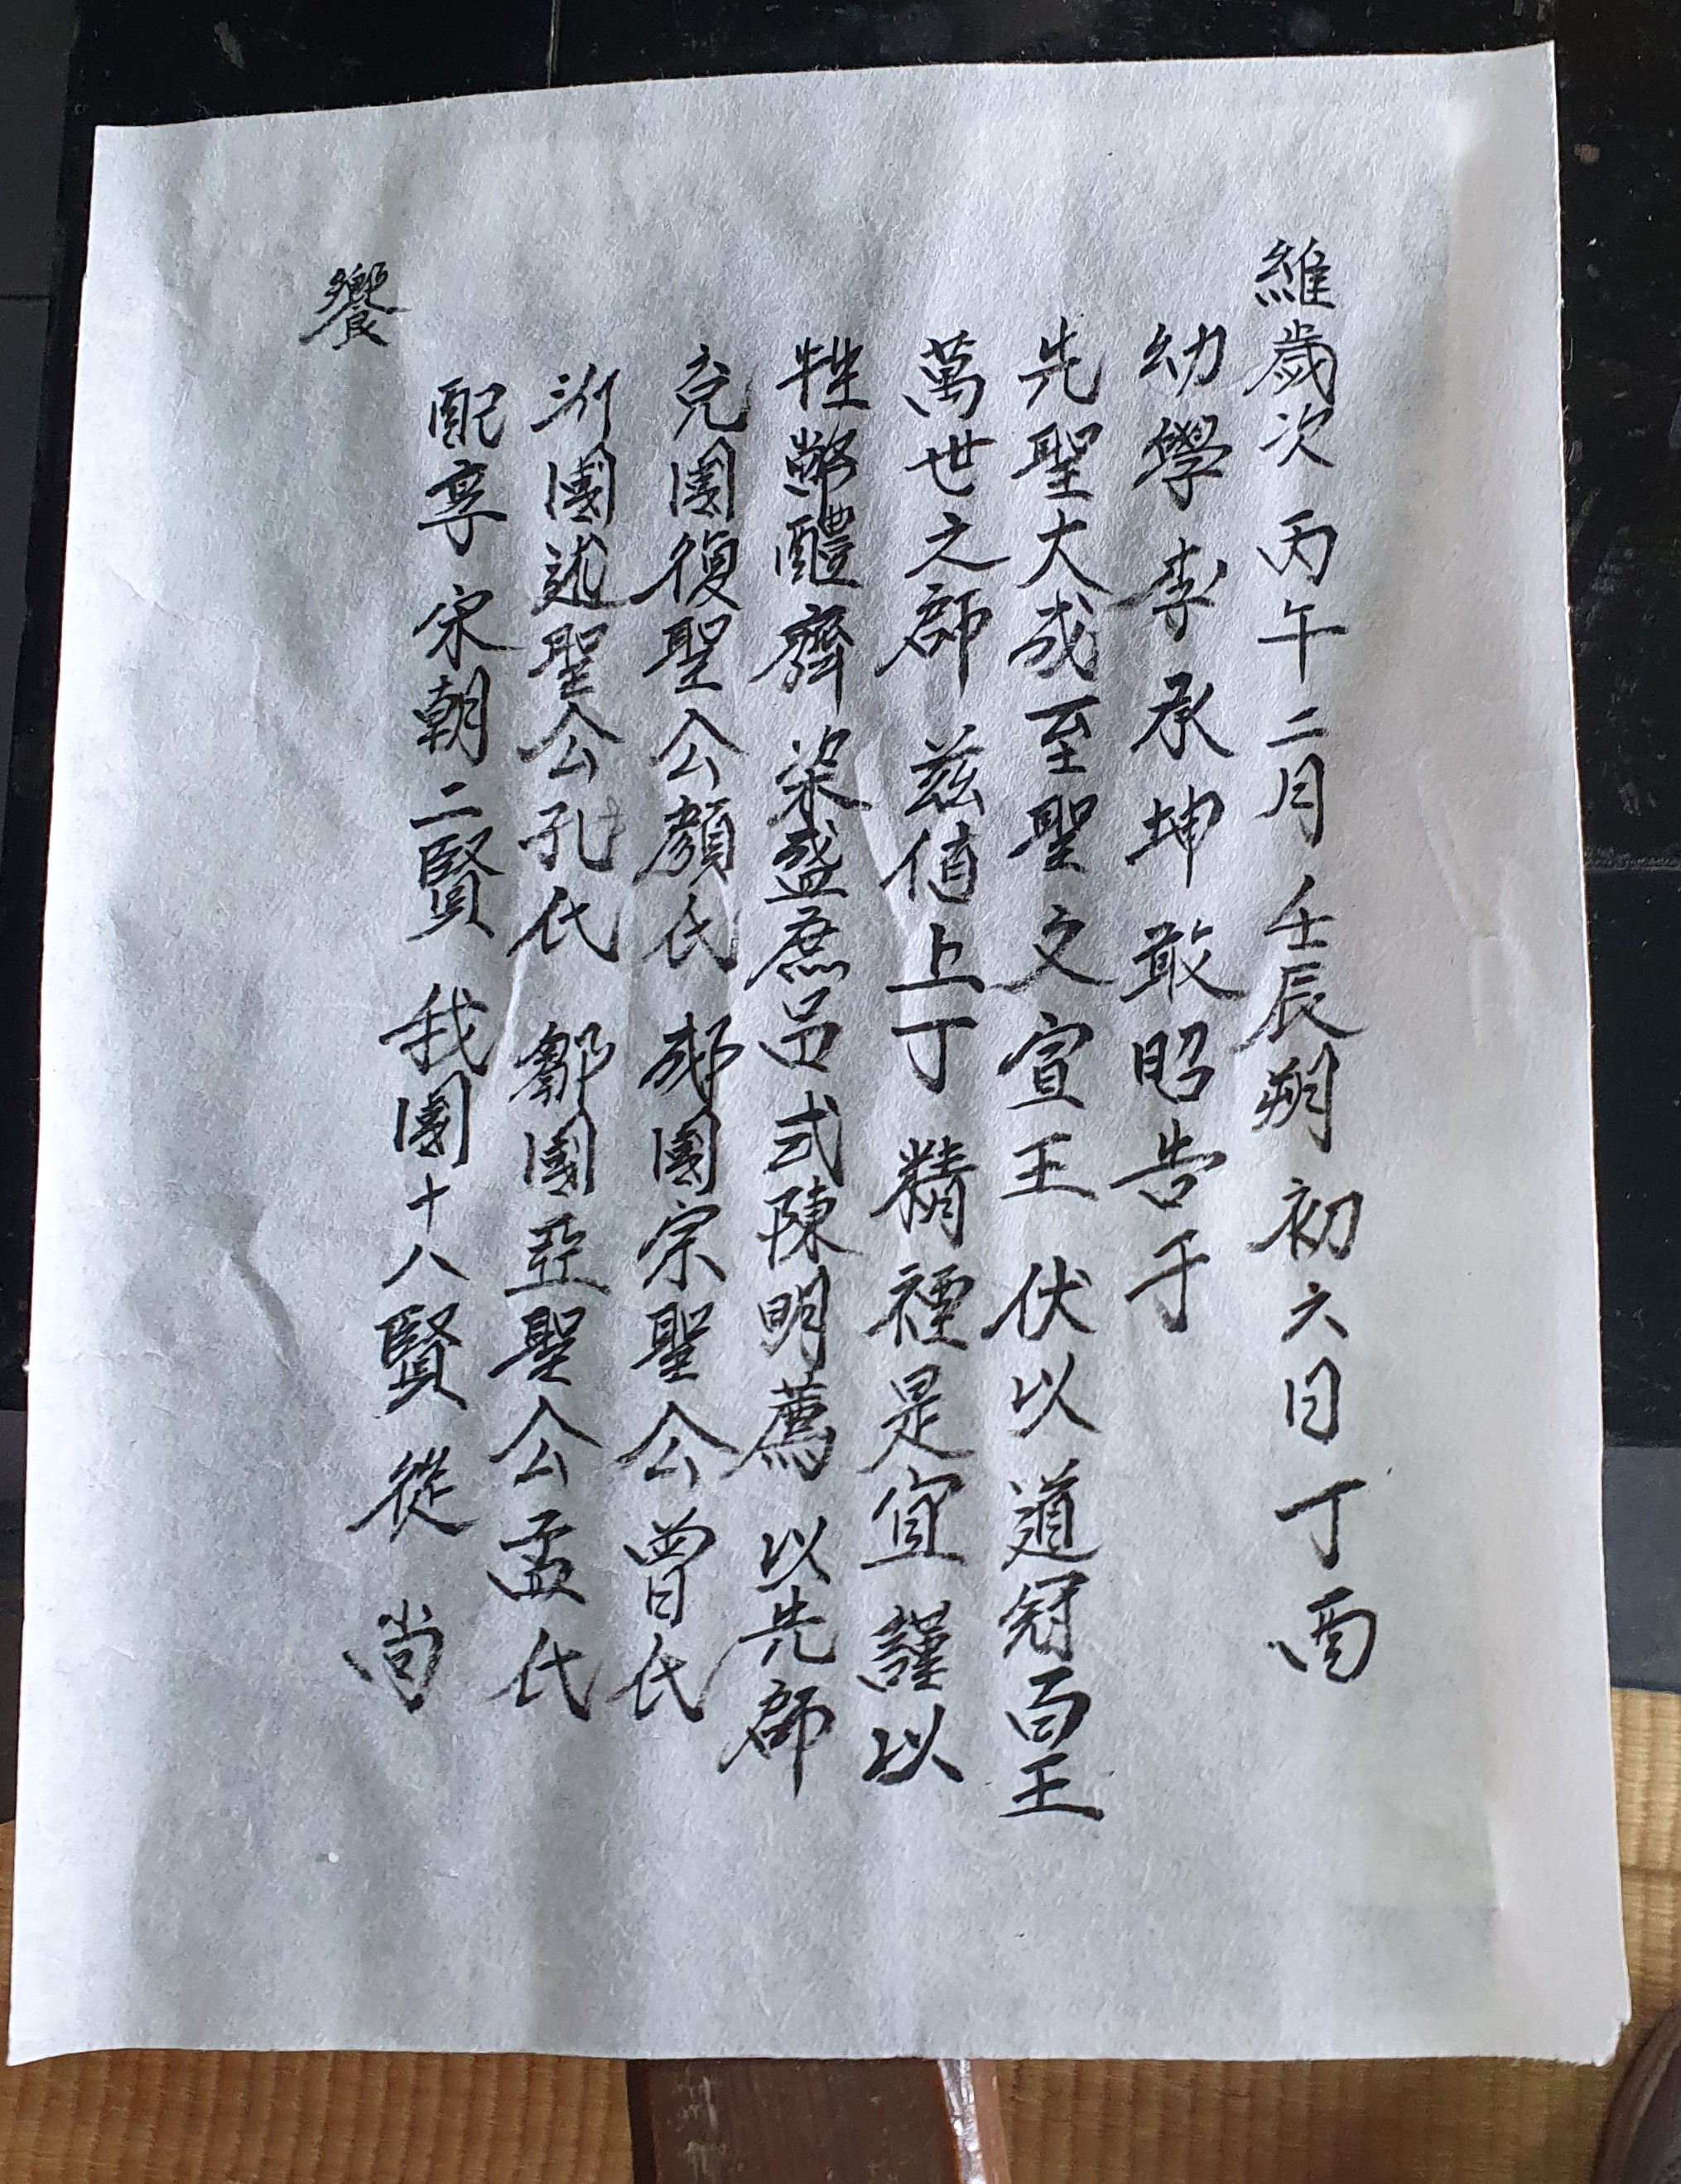 維歲次 丙午二月 壬辰朔 初六日 丁酉
幼學 李承坤 敢昭告于
先聖大成至聖文宣王 伏以 道冠百王
萬世之師 玆値上丁 精禋是宜 謹以
牲幣醴齊 粢盛庶品 式陳明薦 以先師
兗國復聖公顔氏 郕國宗聖公曾氏
沂國述聖公孔氏 鄒國亞聖公孟氏
配享 宋朝二賢 我國十八賢 從 尚
饗